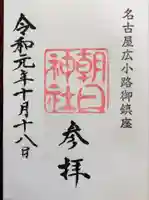 名古屋広小路御鎮座
朝日神社
参拝
令和元年十月十八日